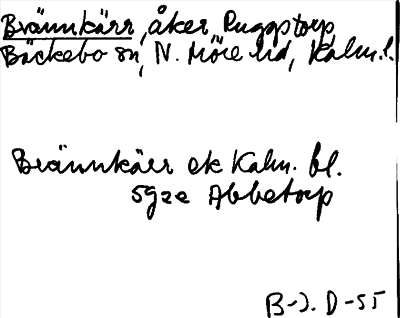 Brännkärr, åker, Ruggstorp,
Bäckebo sn, N. Möre hd, Kalm. l.
Brännkärr ek Kalm. bl.
5g2e Abbetorp
B-J. D-55